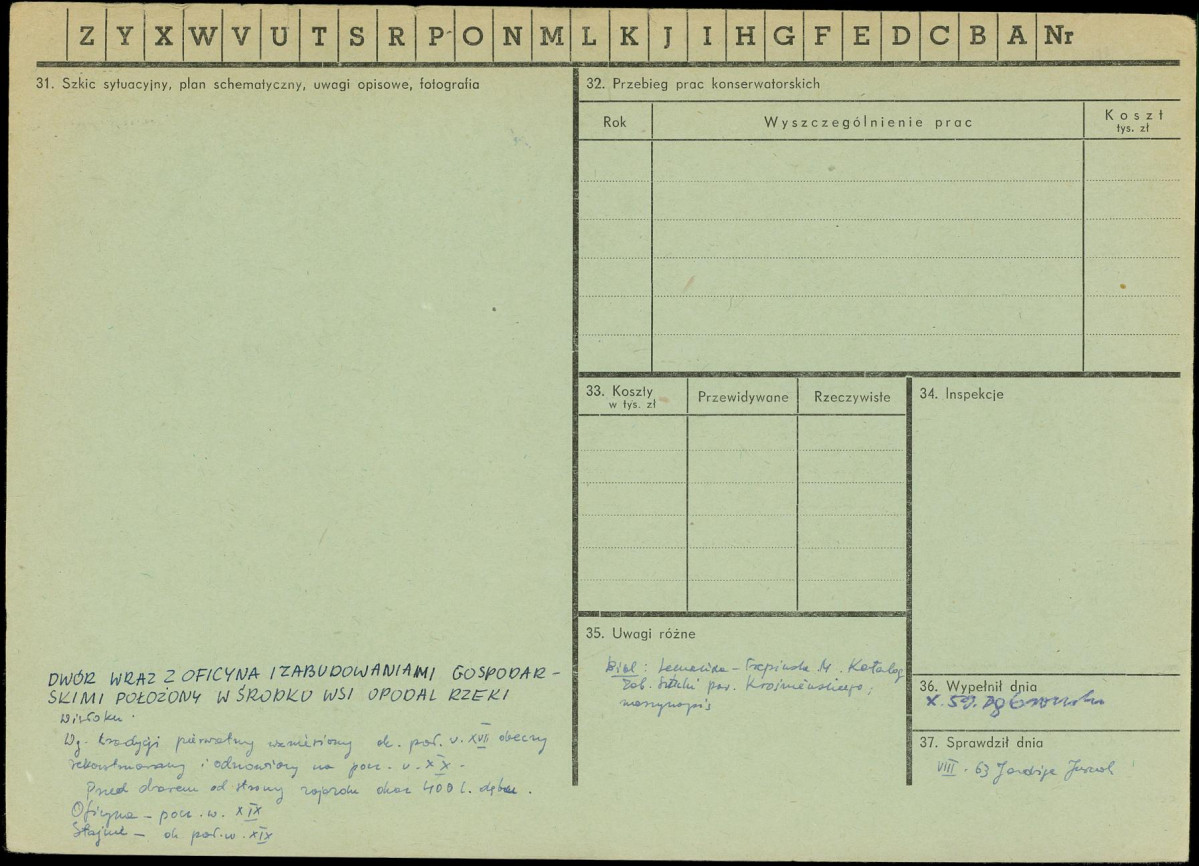 Z Y X W V U T S R P O N M L K J I H G F E D C B A Nr
31. Szkic sytuacyjny, plan schematyczny, uwagi opisowe, fotografia
DWÓR WRAZ Z OFICYNA I ZABUDOWANIAMI GOSPODAR-
SKIMI POŁOŻONY W ŚRODKU WSI OPODAL RZEKI
Wisłoku.
Wg. tradycji pierwotny wzniesiony ok. poł. w. XVII obecny
i odnowiony na pocz. w. XX.
Przed dworem od strony zajazdu okaz 400 l. dębu.
Oficyna - pocz. w. XIX
Stajnie - ok. poł. w. XIX
32. Przebieg prac konserwatorskich
Rok Wyszczególnienie prac Koszt
tys. zł
33. Koszty Przewidywane Rzeczywiste
w tys. zł
34. Inspekcje
35. Uwagi różne
Bibl: M. Katalog
Zab. Sztuki pow. Krośnieńskiego;
maszynopis
36. Wypełnił dnia
X. 59.
37. Sprawdził dnia
VIII. 63